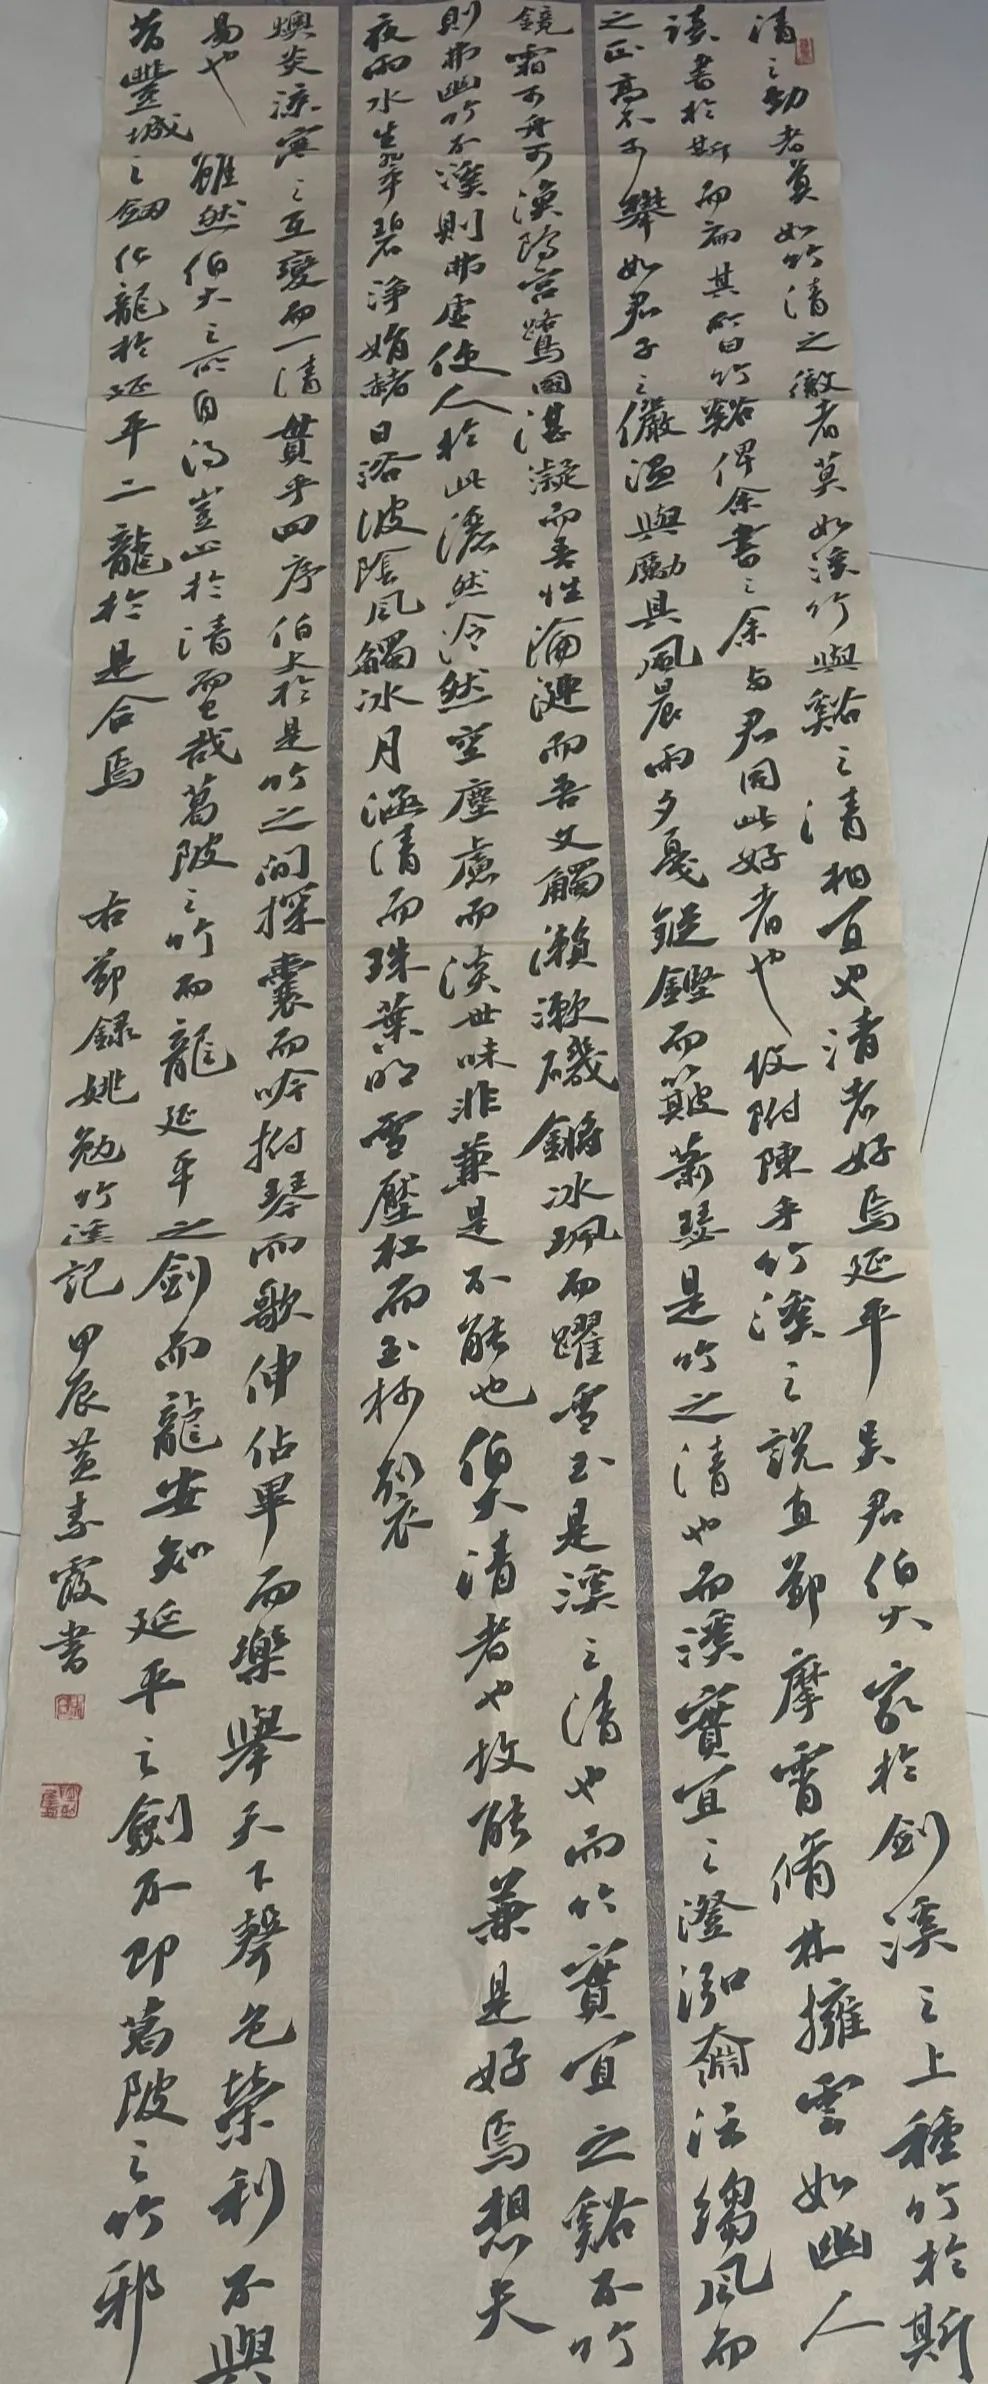 清之勁者莫如竹清之徹者莫如溪竹與谿之清相宜也清者好焉延平吳君伯大家於劍溪之上種竹於斯
讀書於斯而扁其所曰竹谿俾余書之余與君同此好者也故附陳乎竹溪之說直節摩霄脩林擁雲如幽人
之正高不可攀如君子之儼溫與勵具風晨雨夕戛鏦鏗而簸蕭瑟是竹之清也而溪實宜之澄泓奫汪縐風而
鏡霜可舟可漁鷗宮鷺國湛凝而吾性淪漣而吾文觸瀨漱磯鏘冰珮而躍雪玉是溪之清也而竹實宜之谿不竹
則弗幽竹不溪則弗虛使人於此灑然泠然空塵慮而淡世味非兼是不能也伯大清者也故能兼是好焉想夫
夜雨水生翠碧淨娟緒日浴波陰風觸冰月涵清而珠葉明雪壓杠而玉梢裂
燠炎涼寒之互變而一清貫乎四序伯大於是竹之間探囊而吟拊琴而歌伸佔畢而樂舉天下聲色榮利不與
易也 雖然伯大之所自得豈止於清而已哉葛陂之竹而龍延平之劍而龍安知延平之劍不即葛陂之竹邪
昔豐城之劍化龍於延平二龍於是合焉 右節錄姚勉竹溪記 甲辰 霞書